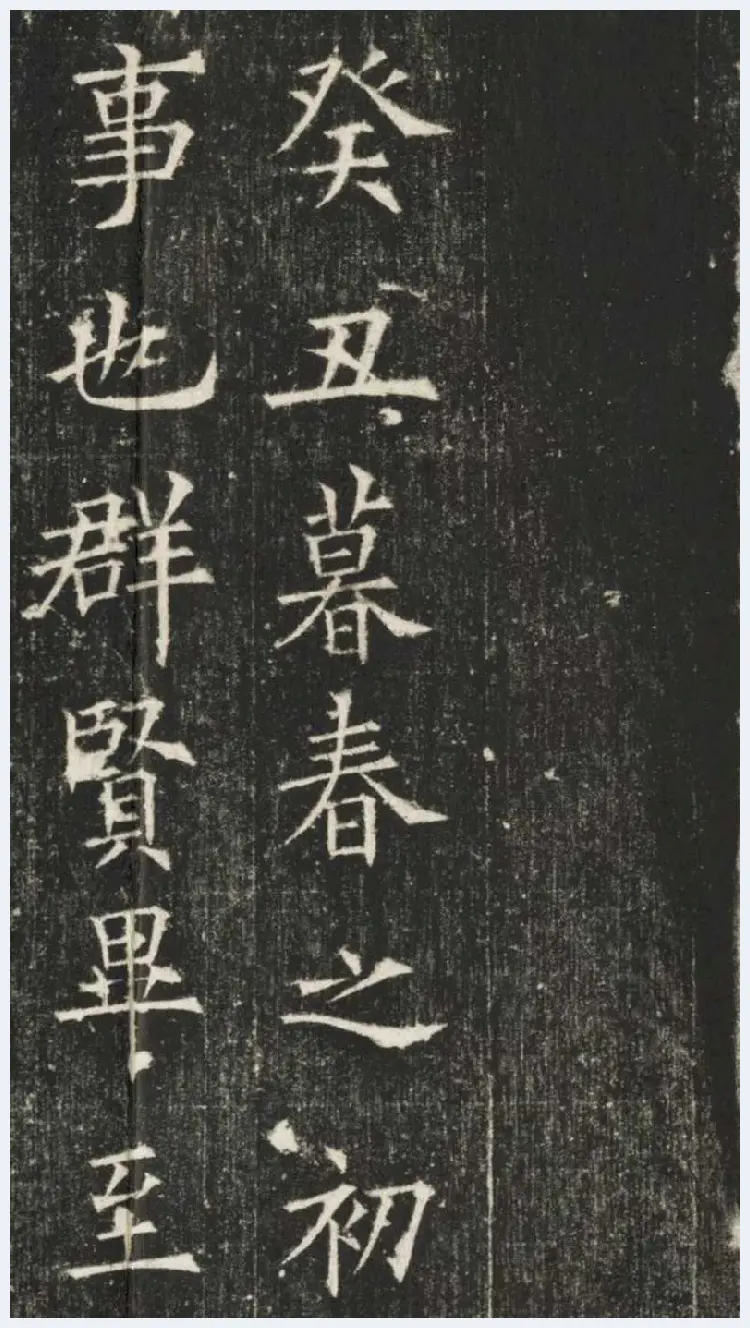 癸丑暮春之初
事也群賢畢至